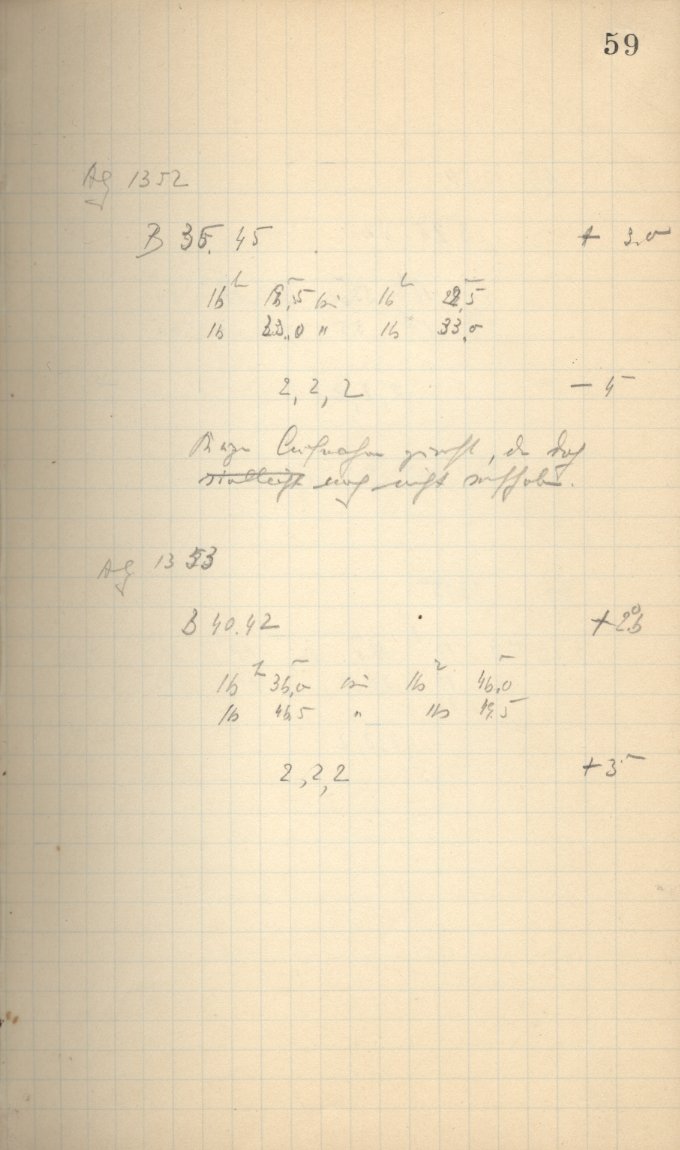 59
Ag 1352
B 35.45 + 3.0
16ʰ 18,5 bis 16ʰ 22,5
16 23,0 " 16 33,0
2, 2, 2 — 4
Aufnahme gemacht, da doch
vielleicht noch nicht
Ag 1353
B 40.42 +
16ʰ 36,0 bis 16ʰ 46,0
16 46,5 " 16 49,5
2, 2, 2 + 3